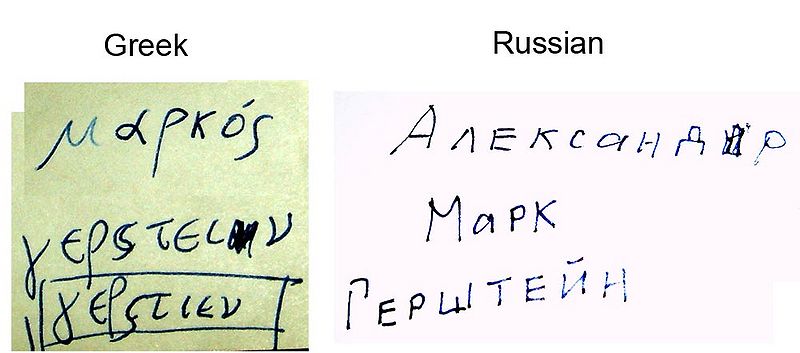 Greek
Russian
μαρκός
γερςτει ν
γερςτιεν
Александр
Марк
Герштейн